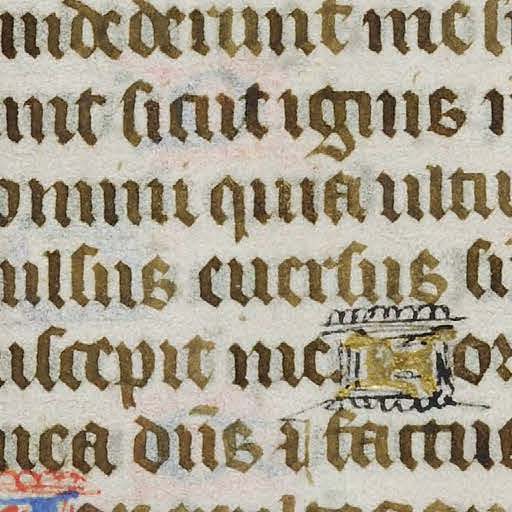 mdederunt me si
unt sicut ignis i
omini quia ultu
ulsus euersus su
uscepit me For
mea dn̄s ⁊ factus